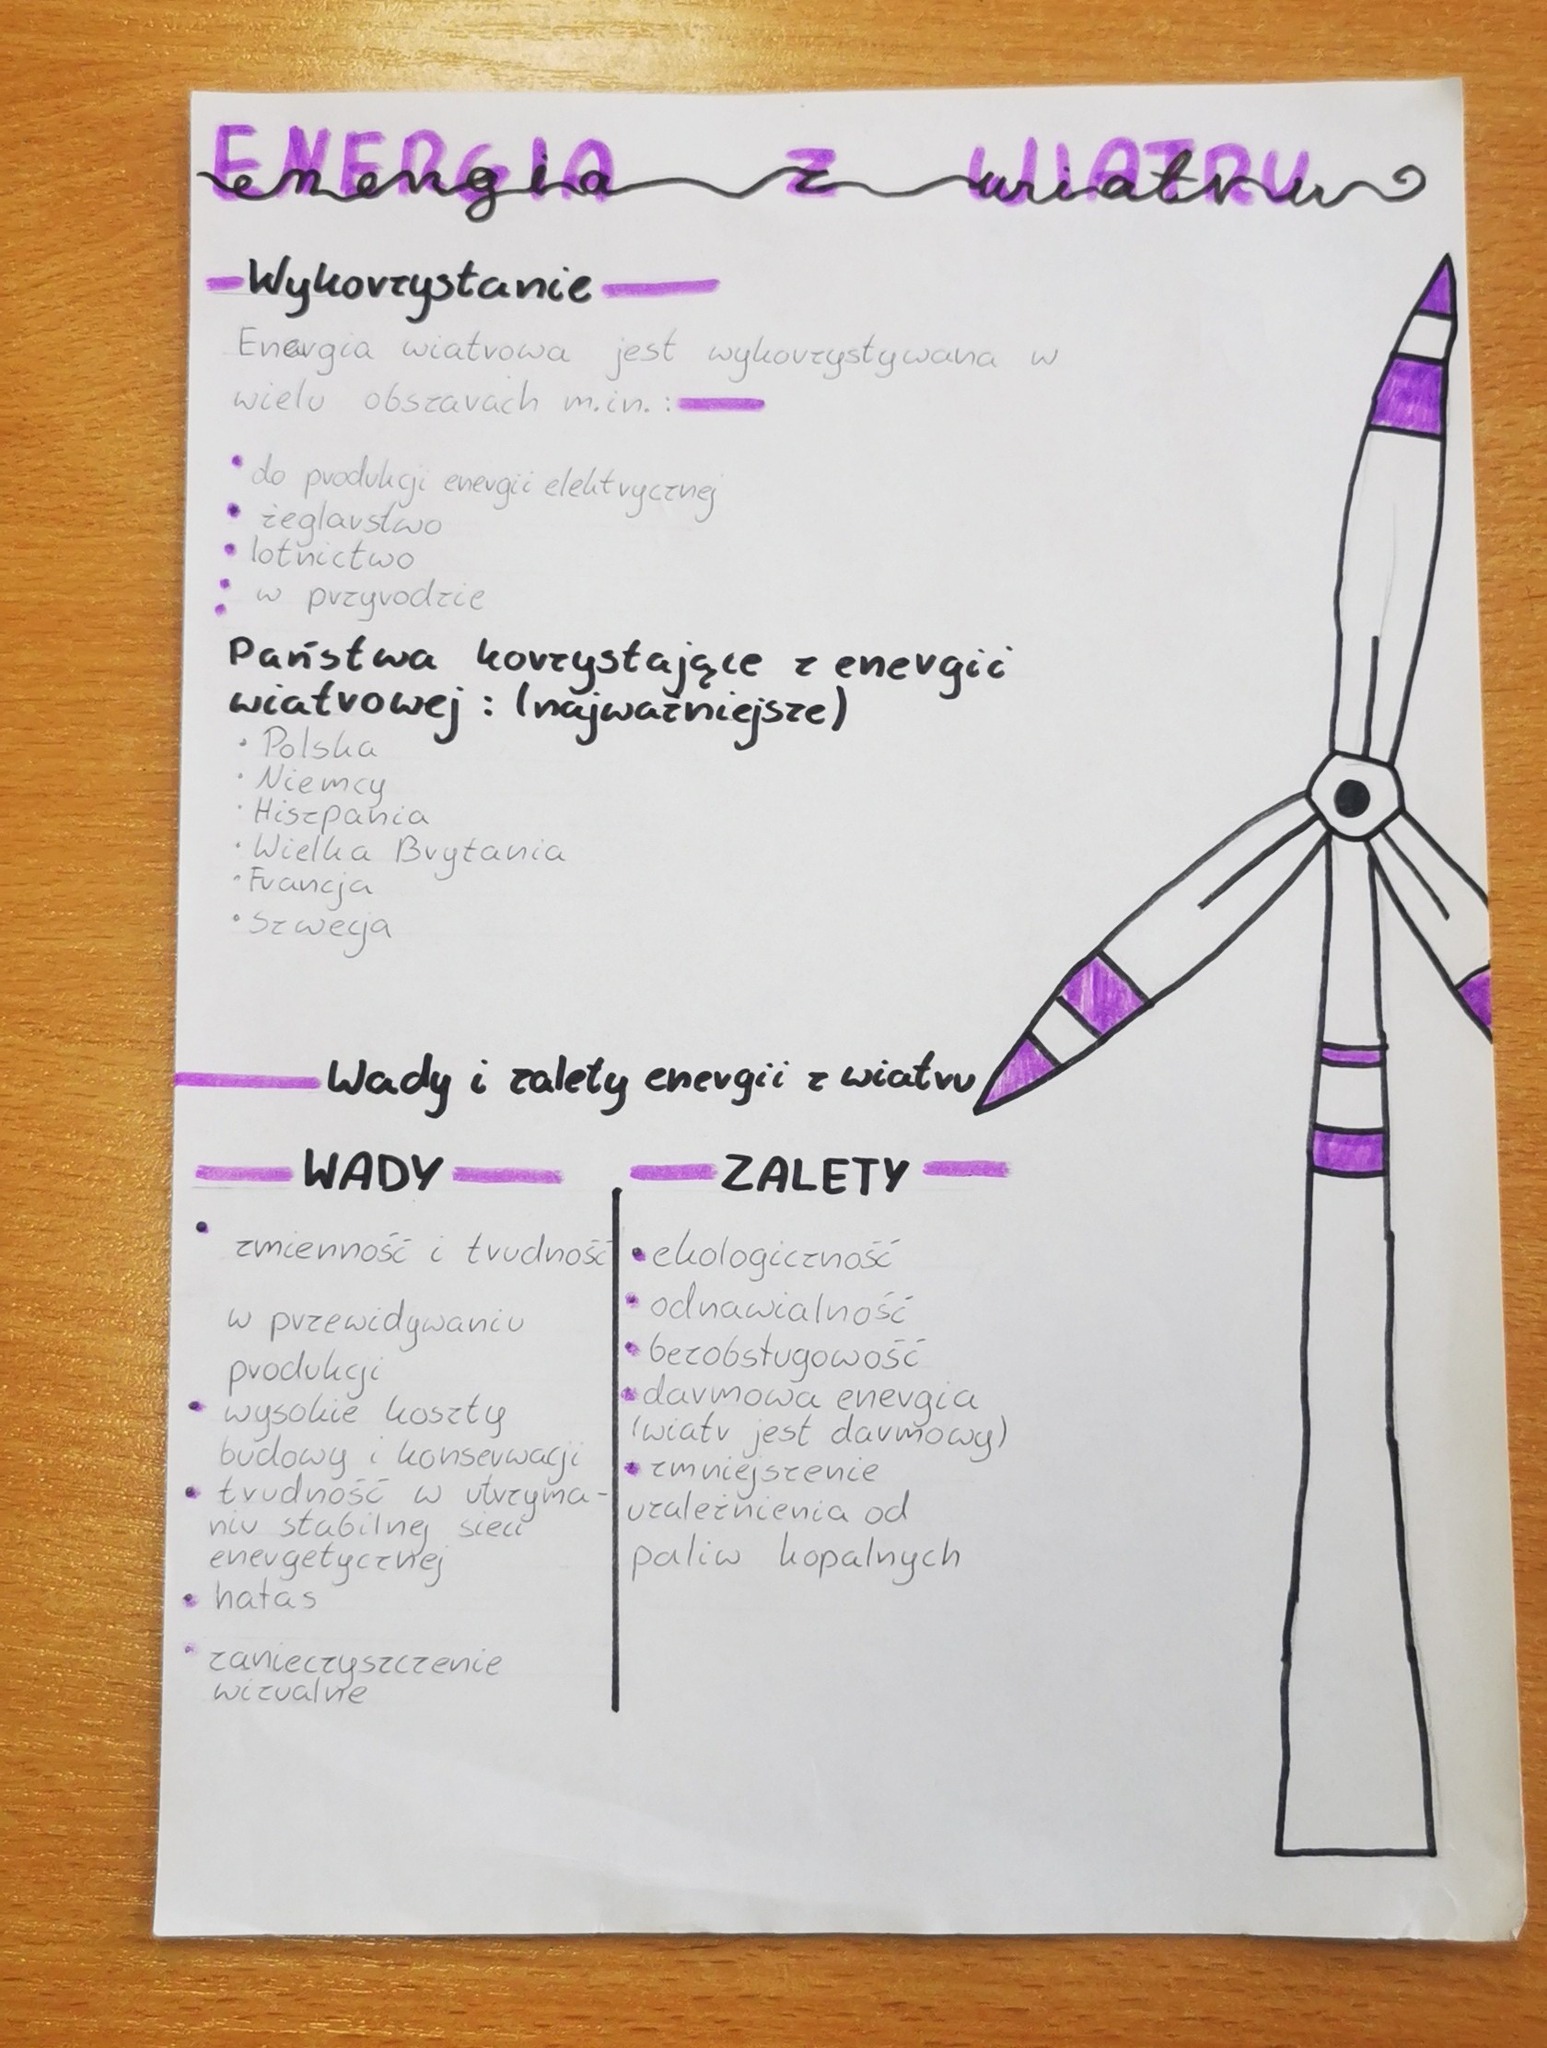 ENERGIA Z WIATRU
energia z wiatru
Wykorzystanie
Energia wiatrowa jest wykorzystywana w
wielu obszarach m.in.:
• do produkcji energii elektrycznej
• żeglarstwo
• lotnictwo
• w przyrodzie
Państwa korzystające z energii
wiatrowej: (najważniejsze)
• Polska
• Niemcy
• Hiszpania
• Wielka Brytania
• Francja
• Szwecja
Wady i zalety energii z wiatru
WADY
• zmienność i trudność
w przewidywaniu
produkcji
• wysokie koszty
budowy i konserwacji
• trudność w utrzyma-
niu stabilnej sieci
energetycznej
• hałas
• zanieczyszczenie
wizualne
ZALETY
• ekologiczność
• odnawialność
• bezobsługowość
• darmowa energia
(wiatr jest darmowy)
• zmniejszenie
uzależnienia od
paliw kopalnych